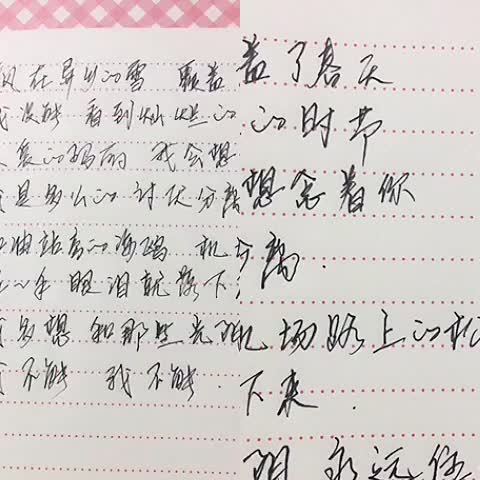 飘在异乡的雪 覆盖
没能看到灿烂的
我会想
是多么的讨厌分离
油站旁的海鸥 机
手 眼泪就落下
多想和那些光阴
不能 我不能.
盖了春天
的时节
想念着你
分离.
机场路上的松
下来.
阴 永远住